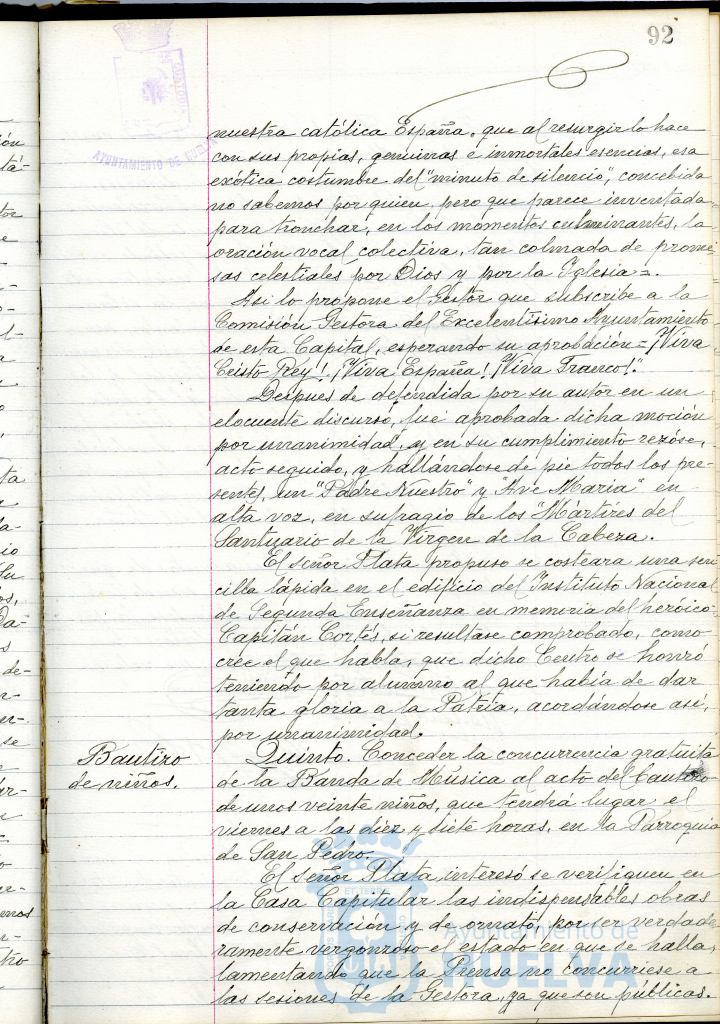 92
AYUNTAMIENTO DE HUELVA
nuestra católica España, que al resurgir lo hace
con sus propias, genuinas e inmortales esencias, esa
exótica costumbre del "minuto de silencio", concebida
no sabemos por quien, pero que parece inventada
para tronchar, en los momentos culminantes, la
oración vocal colectiva, tan colmada de prome-
sas celestiales por Dios y por la Iglesia =.
Asi lo propone el Gestor que subscribe a la
Comisión Gestora del Excelentísimo Ayuntamiento
de esta Capital, esperando su aprobación = ¡Viva
Cristo Rey! ¡Viva España! ¡Viva Franco!".
Despues de defendida por su autor en un
elocuente discurso, fué aprobada dicha moción
por unanimidad, y en su cumplimiento rezóse,
acto seguido, y hallándose de pie todos los pre-
sentes, un "Padre Nuestro" y "Ave Maria" en
alta voz, en sufragio de los "Mártires del
Santuario de la Virgen de la Cabeza.
El señor Plata propuso se costeara una sen
cilla lápida en el edificio del Instituto Nacional
de Segunda Enseñanza en memoria del heróico
Capitán Cortés, si resultase comprobado, como
cree el que habla, que dicho Centro se honró
teniendo por alumno al que había de dar
tanta gloria a la Patria, acordándose así,
por unanimidad.
Bautizo
de niños.
Quinto. Conceder la concurrencia gratuita
de la Banda de Música al acto del bautizo
de unos veinte niños, que tendrá lugar el
viernes a las diez y siete horas, en la Parroquia
de San Pedro.
El señor Plata interesó se verifiquen en
la Casa Capitular las indispensables obras
de conservación y de ornato, por ser verdade
ramente vergonzoso el estado en que se halla,
lamentando que la Prensa no concurriese a
las sesiones de la Gestora, ya que son públicas.
Ayuntamiento de
HUELVA